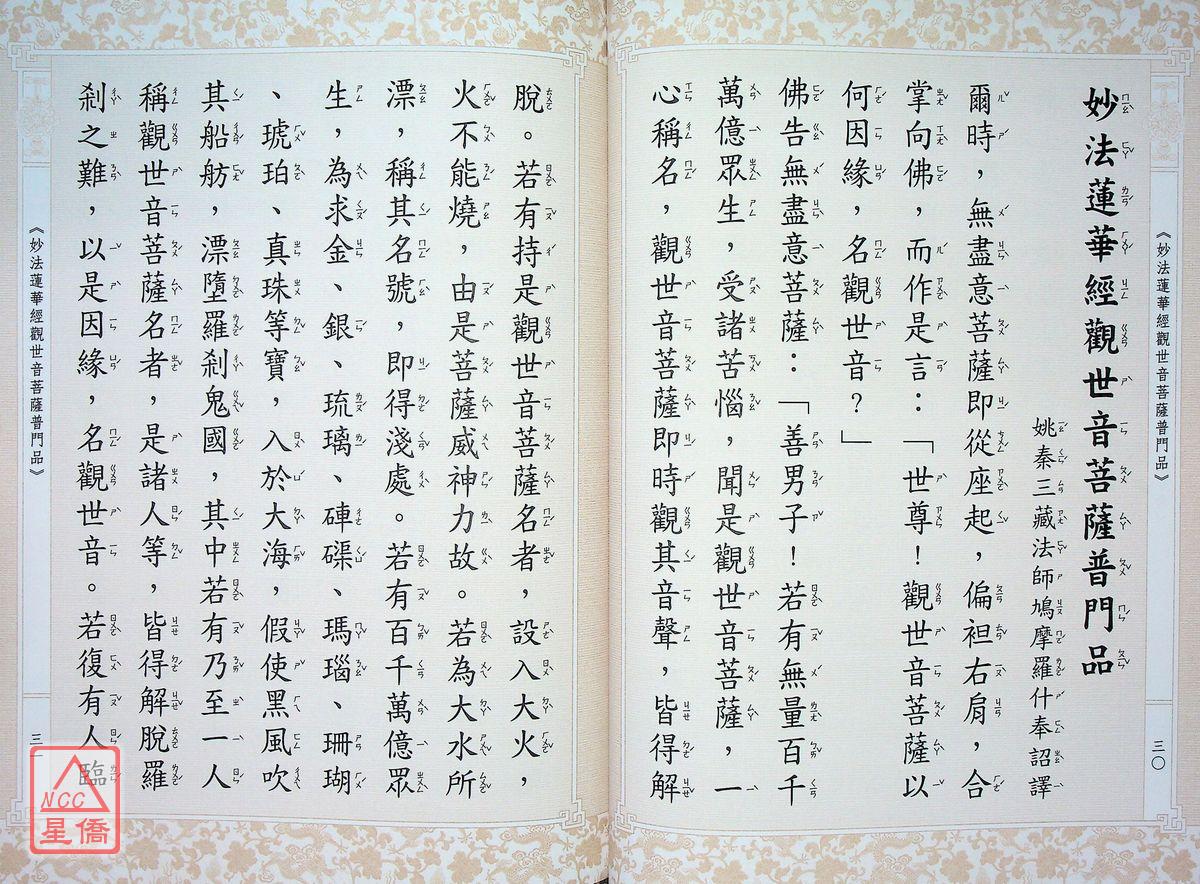 《妙法蓮華經觀世音菩薩普門品》
三〇
妙法蓮華經觀世音菩薩普門品
姚秦三藏法師鳩摩羅什奉詔譯
爾時，無盡意菩薩即從座起，偏袒右肩，合
掌向佛，而作是言：「世尊！觀世音菩薩以
何因緣，名觀世音？」
佛告無盡意菩薩：「善男子！若有無量百千
萬億眾生，受諸苦惱，聞是觀世音菩薩，一
心稱名，觀世音菩薩即時觀其音聲，皆得解
脫。若有持是觀世音菩薩名者，設入大火，
火不能燒，由是菩薩威神力故。若為大水所
漂，稱其名號，即得淺處。若有百千萬億眾
生，為求金、銀、琉璃、硨磲、瑪瑙、珊瑚
、琥珀、真珠等寶，入於大海，假使黑風吹
其船舫，漂墮羅剎鬼國，其中若有乃至一人
稱觀世音菩薩名者，是諸人等，皆得解脫羅
剎之難，以是因緣，名觀世音。若復有人臨
《妙法蓮華經觀世音菩薩普門品》
NCC
星僑